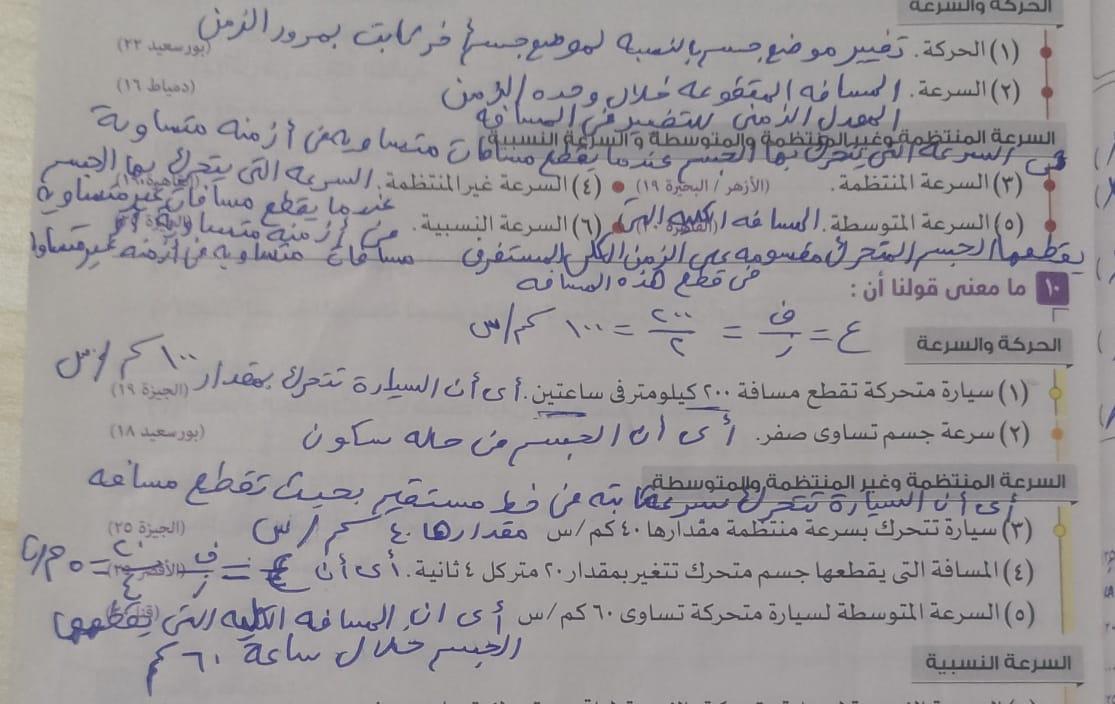 الحركة والسرعة
(١) الحركة. تغيير موضع جسم بالنسبه لموضع جسم أخر ثابت بمرور الزمن (بورسعيد ٢٢)
(٢) السرعة. المسافه المقطوعه خلال وحده الزمن (دمياط ١٦)
المعدل الزمنى للتغير فى المسافه
السرعة المنتظمة وغير المنتظمة والمتوسطة والسرعة النسبية
هى السرعه التى يتحرك بها الجسم عندما يقطع مسافات متساويه فى أزمنه متساوية
(٣) السرعة المنتظمة. (الأزهر / البحيرة ١٩) (٤) السرعة غير المنتظمة. السرعه التى يتحرك بها الجسم
عندما يقطع مسافات غير متساويه
(٥) السرعة المتوسطة. المسافه الكليه التى (٦) السرعة النسبية.
فى أزمنه متساويه أو
يقطعها الجسم المتحرك مقسومه على الزمن الكلى المستغرق
مسافات متساويه فى أزمنه غير متساويه
فى قطع هذه المسافه
١٠ ما معنى قولنا أن :
ع = ف/ز = ٢٠٠/٢ = ١٠٠ كم/س
الحركة والسرعة
(١) سيارة متحركة تقطع مسافة ٢٠٠ كيلومتر فى ساعتين. أى أن السيارة تتحرك بمقدار ١٠٠ كم/س (الجيزة ١٩)
(٢) سرعة جسم تساوى صفر. أى أن الجسم فى حاله سكون (بورسعيد ١٨)
السرعة المنتظمة وغير المنتظمة والمتوسطة
أى أن السيارة تتحرك بسرعة ثابته فى خط مستقيم بحيث تقطع مسافه
(٣) سيارة تتحرك بسرعة منتظمة مقدارها ٤٠ كم/س مقدارها ٤٠ كم/س (الجيزة ٢٥)
(٤) المسافة التى يقطعها جسم متحرك تتغير بمقدار ٢٠ متر كل ٤ ثانية. أى أن ع = ف/ز = ٢٠/٤ = ٥ م/ث
(٥) السرعة المتوسطة لسيارة متحركة تساوى ٦٠ كم/س أى ان المسافه الكليه التى يقطعها
الجسم خلال ساعة ٦٠ كم
السرعة النسبية